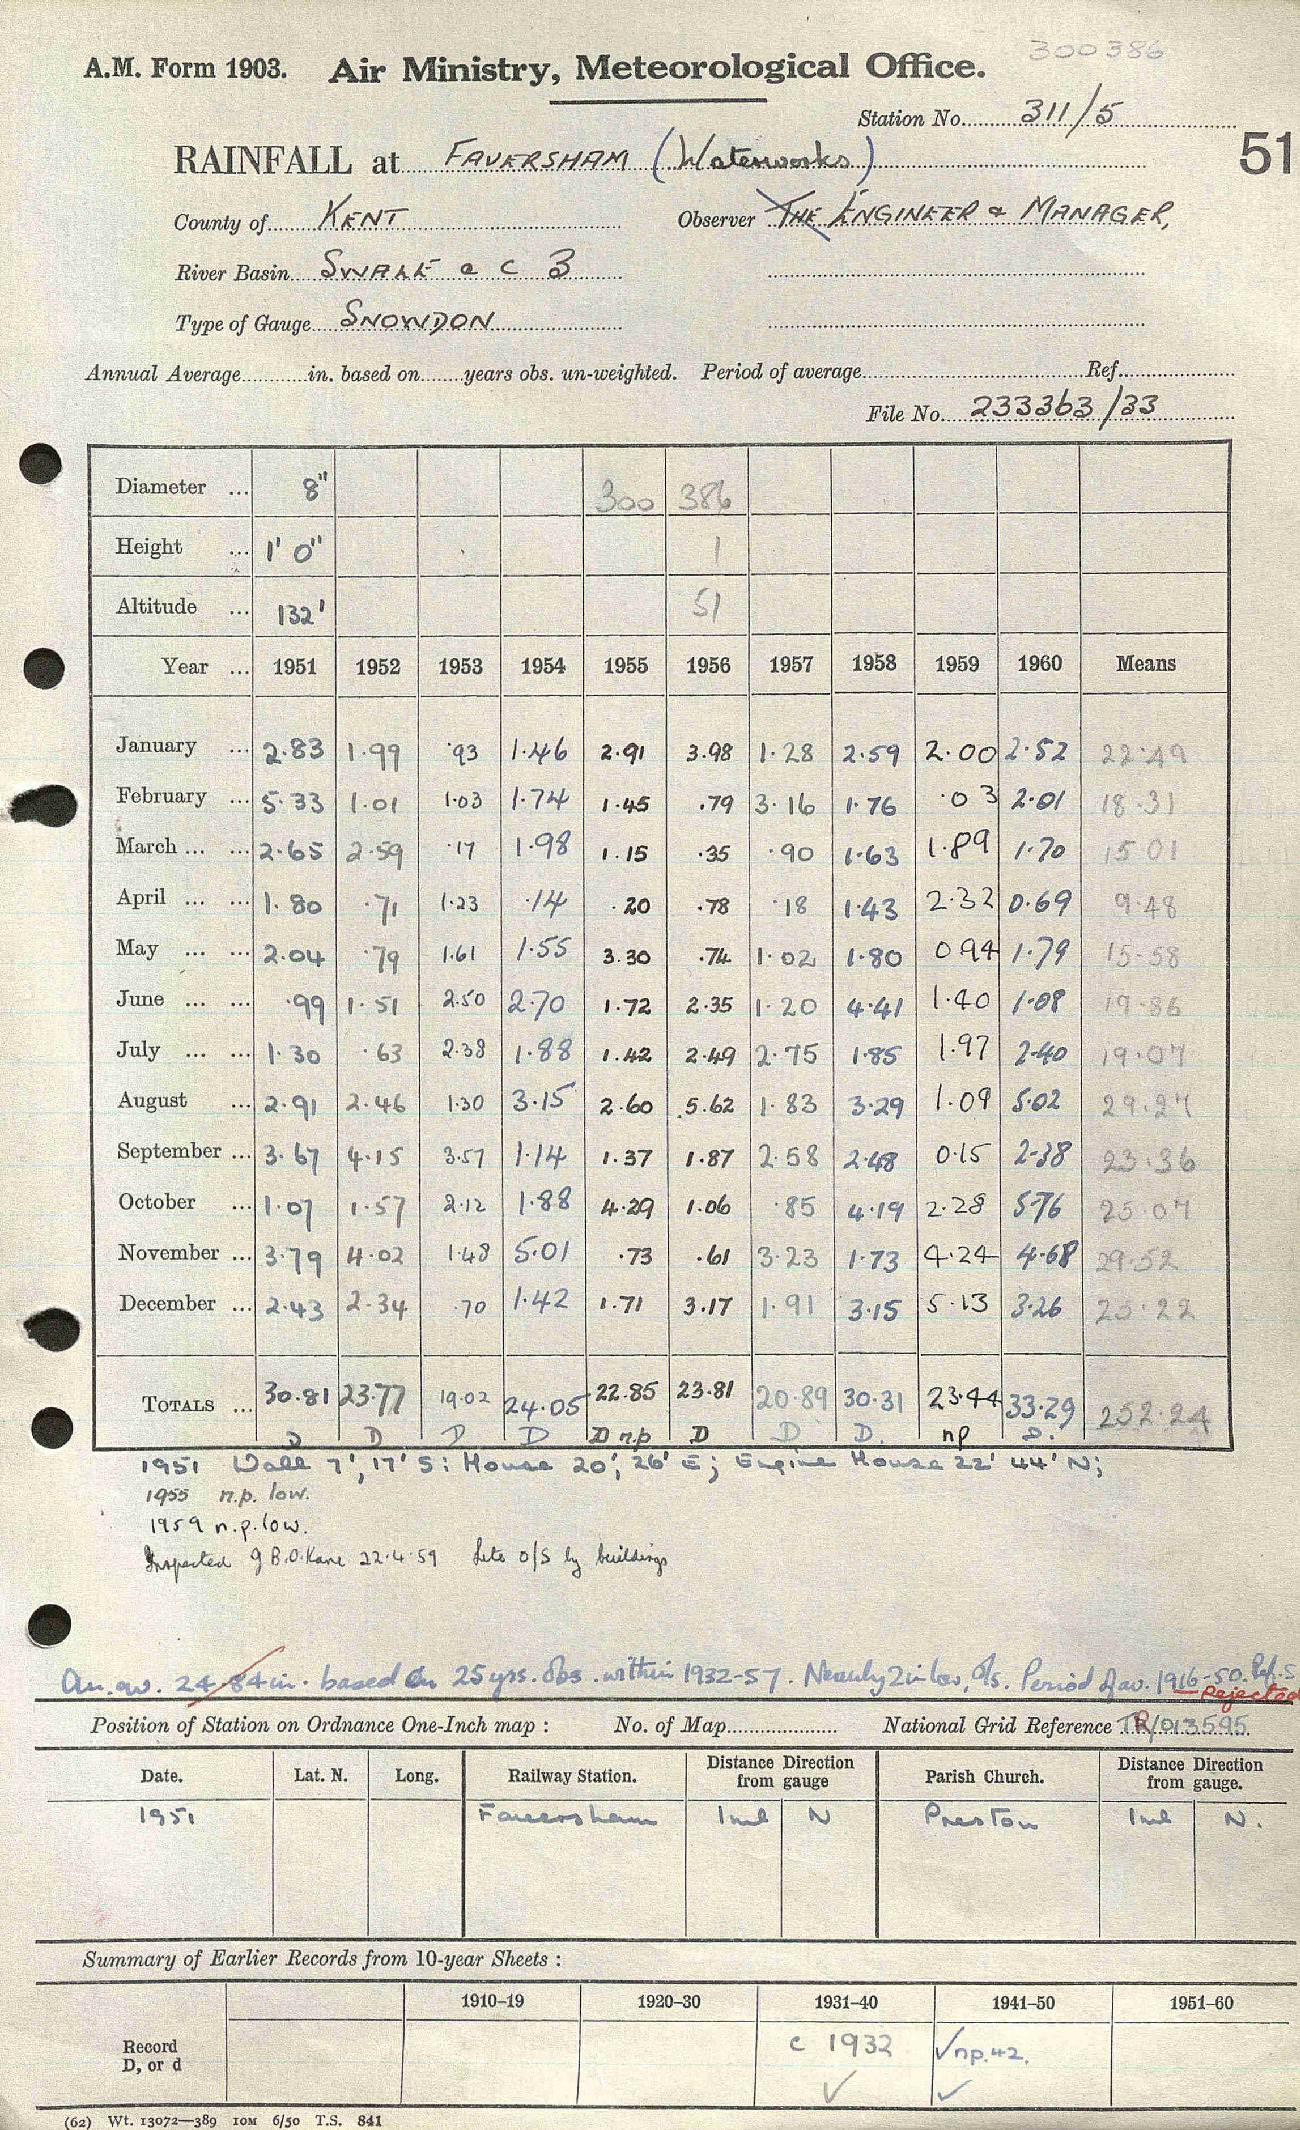 300386
A.M. Form 1903. Air Ministry, Meteorological Office.
Station No. 311/5
51
RAINFALL at FAVERSHAM (Waterworks)
County of KENT Observer THE ENGINEER & MANAGER,
River Basin SWALE e c 3
Type of Gauge SNOWDON
Annual Average in. based on years obs. un-weighted. Period of average Ref.
File No. 233363/33
Diameter ... 8" 300 386
Height ... 1' 0" 1
Altitude ... 132' 51
Year ... 1951 1952 1953 1954 1955 1956 1957 1958 1959 1960 Means
January ... 2.83 1.99 .93 1.46 2.91 3.98 1.28 2.59 2.00 2.52 22.49
February ... 5.33 1.01 1.03 1.74 1.45 .79 3.16 1.76 .03 2.01 18.31
March ... ... 2.65 2.59 .17 1.98 1.15 .35 .90 1.63 1.89 1.70 15 01
April ... ... 1.80 .71 1.23 .14 .20 .78 .18 1.43 2.32 0.69 9.48
May ... ... 2.04 .79 1.61 1.55 3.30 .74 1.02 1.80 0.94 1.79 15.58
June ... ... .99 1.51 2.50 2.70 1.72 2.35 1.20 4.41 1.40 1.08 19.86
July ... ... 1.30 .63 2.38 1.88 1.42 2.49 2.75 1.85 1.97 2.40 19.07
August ... 2.91 2.46 1.30 3.15 2.60 5.62 1.83 3.29 1.09 5.02 29.27
September ... 3.67 4.15 3.57 1.14 1.37 1.87 2.58 2.48 0.15 2.38 23.36
October ... 1.07 1.57 2.12 1.88 4.29 1.06 .85 4.19 2.28 5.76 25.07
November ... 3.79 4.02 1.48 5.01 .73 .61 3.23 1.73 4.24 4.68 29.52
December ... 2.43 2.34 .70 1.42 1.71 3.17 1.91 3.15 5.13 3.26 25.22
TOTALS ... 30.81 23.77 19.02 24.05 22.85 23.81 20.89 30.31 23.44 33.29 252.24
D D D D D n.p D D D. np D.
1951 Wall 7', 17' S: House 20', 26' E; Engine House 22' 44' N;
1955 n.p. low.
1959 n.p. low.
Inspected J B.O.Kane 22.4.59 Site o/S by buildings
An. av. 24.84 in. based on 25 yrs. obs. within 1932-57. Nearly 2 in low, o/s. Period of av. 1916-50. Ref. S
Rejected
Position of Station on Ordnance One-Inch map : No. of Map National Grid Reference TR/013595
Date. Lat. N. Long. Railway Station. Distance from gauge Direction Parish Church. Distance from gauge. Direction
1951 Faversham 1ml N Preston 1ml N.
Summary of Earlier Records from 10-year Sheets :
1910–19 1920–30 1931–40 1941–50 1951–60
Record D, or d c 1932 ✓ ✓np.42. ✓
(62) Wt. 13072—389 10M 6/50 T.S. 841